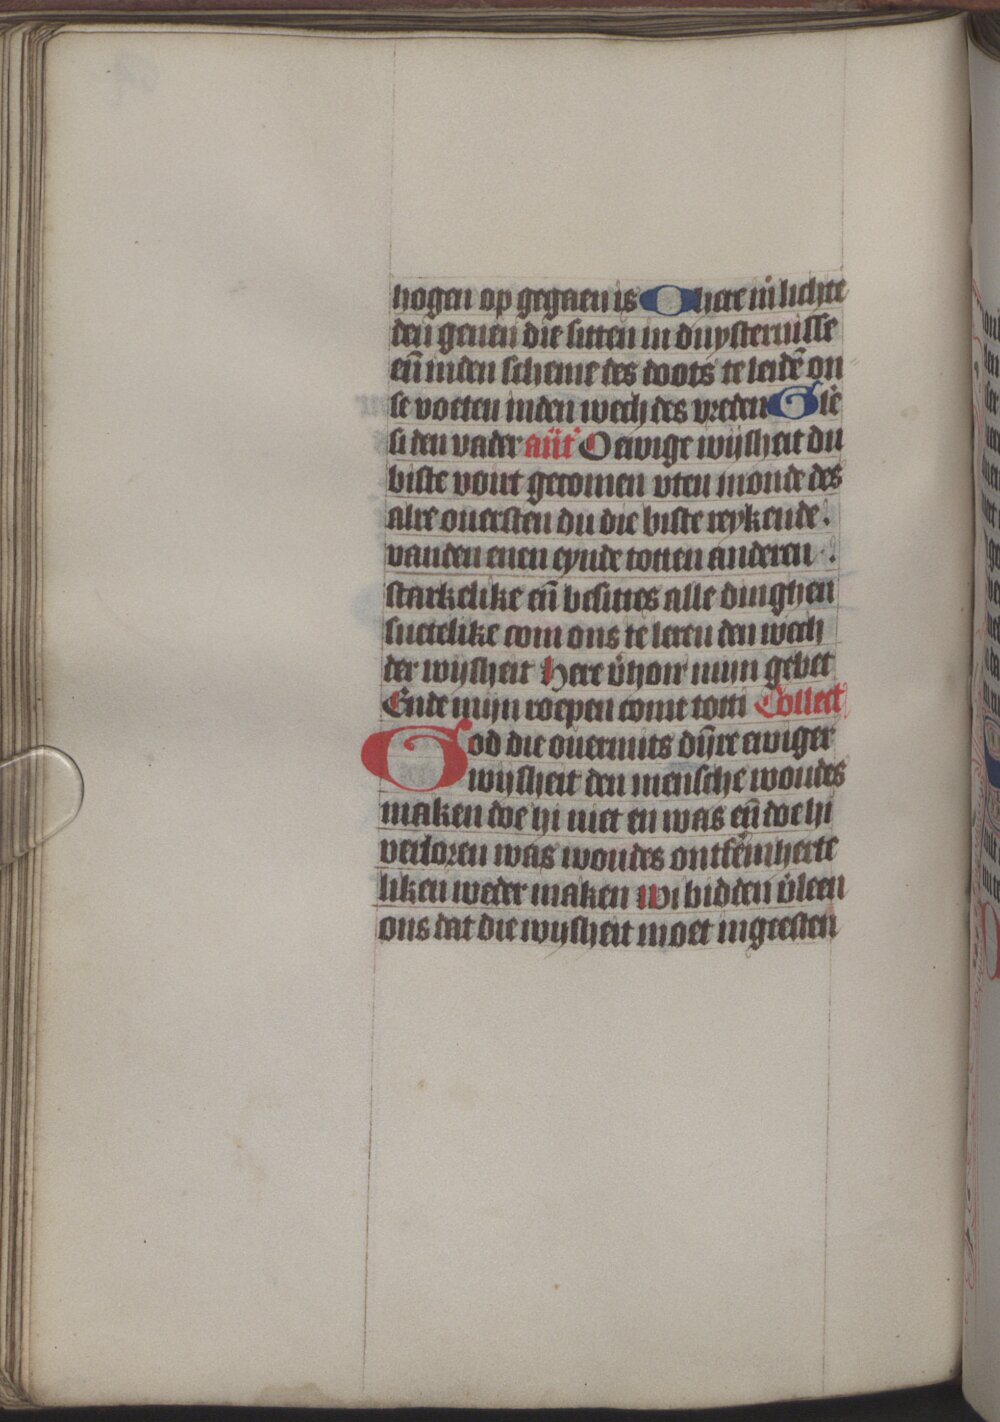 hogen op gegaen is O here in lichte
den genen die sitten in duysternisse
eñ inden scheme des doots te leidē on
se voeten inden wech des vreden Gle
si den vader añt O ewige wijsheit du
biste vout gecomen vten monde des
alre ouersten du die biste reykende
vanden enen eynde totten anderen
starkelike eñ besittes alle dinghen
suetelike com ons te leren den wech
der wijsheit Here v̄hoir mijn gebet
Ende mijn roepen come totti Collect
God die ouermits dijnre ewiger
wijsheit den mensche woudes
maken doe hi niet en was eñ doe hi
verloren was woudes ontfēmherte
liken weder maken wi bidden v̄leen
ons dat die wijsheit moet ingeesten